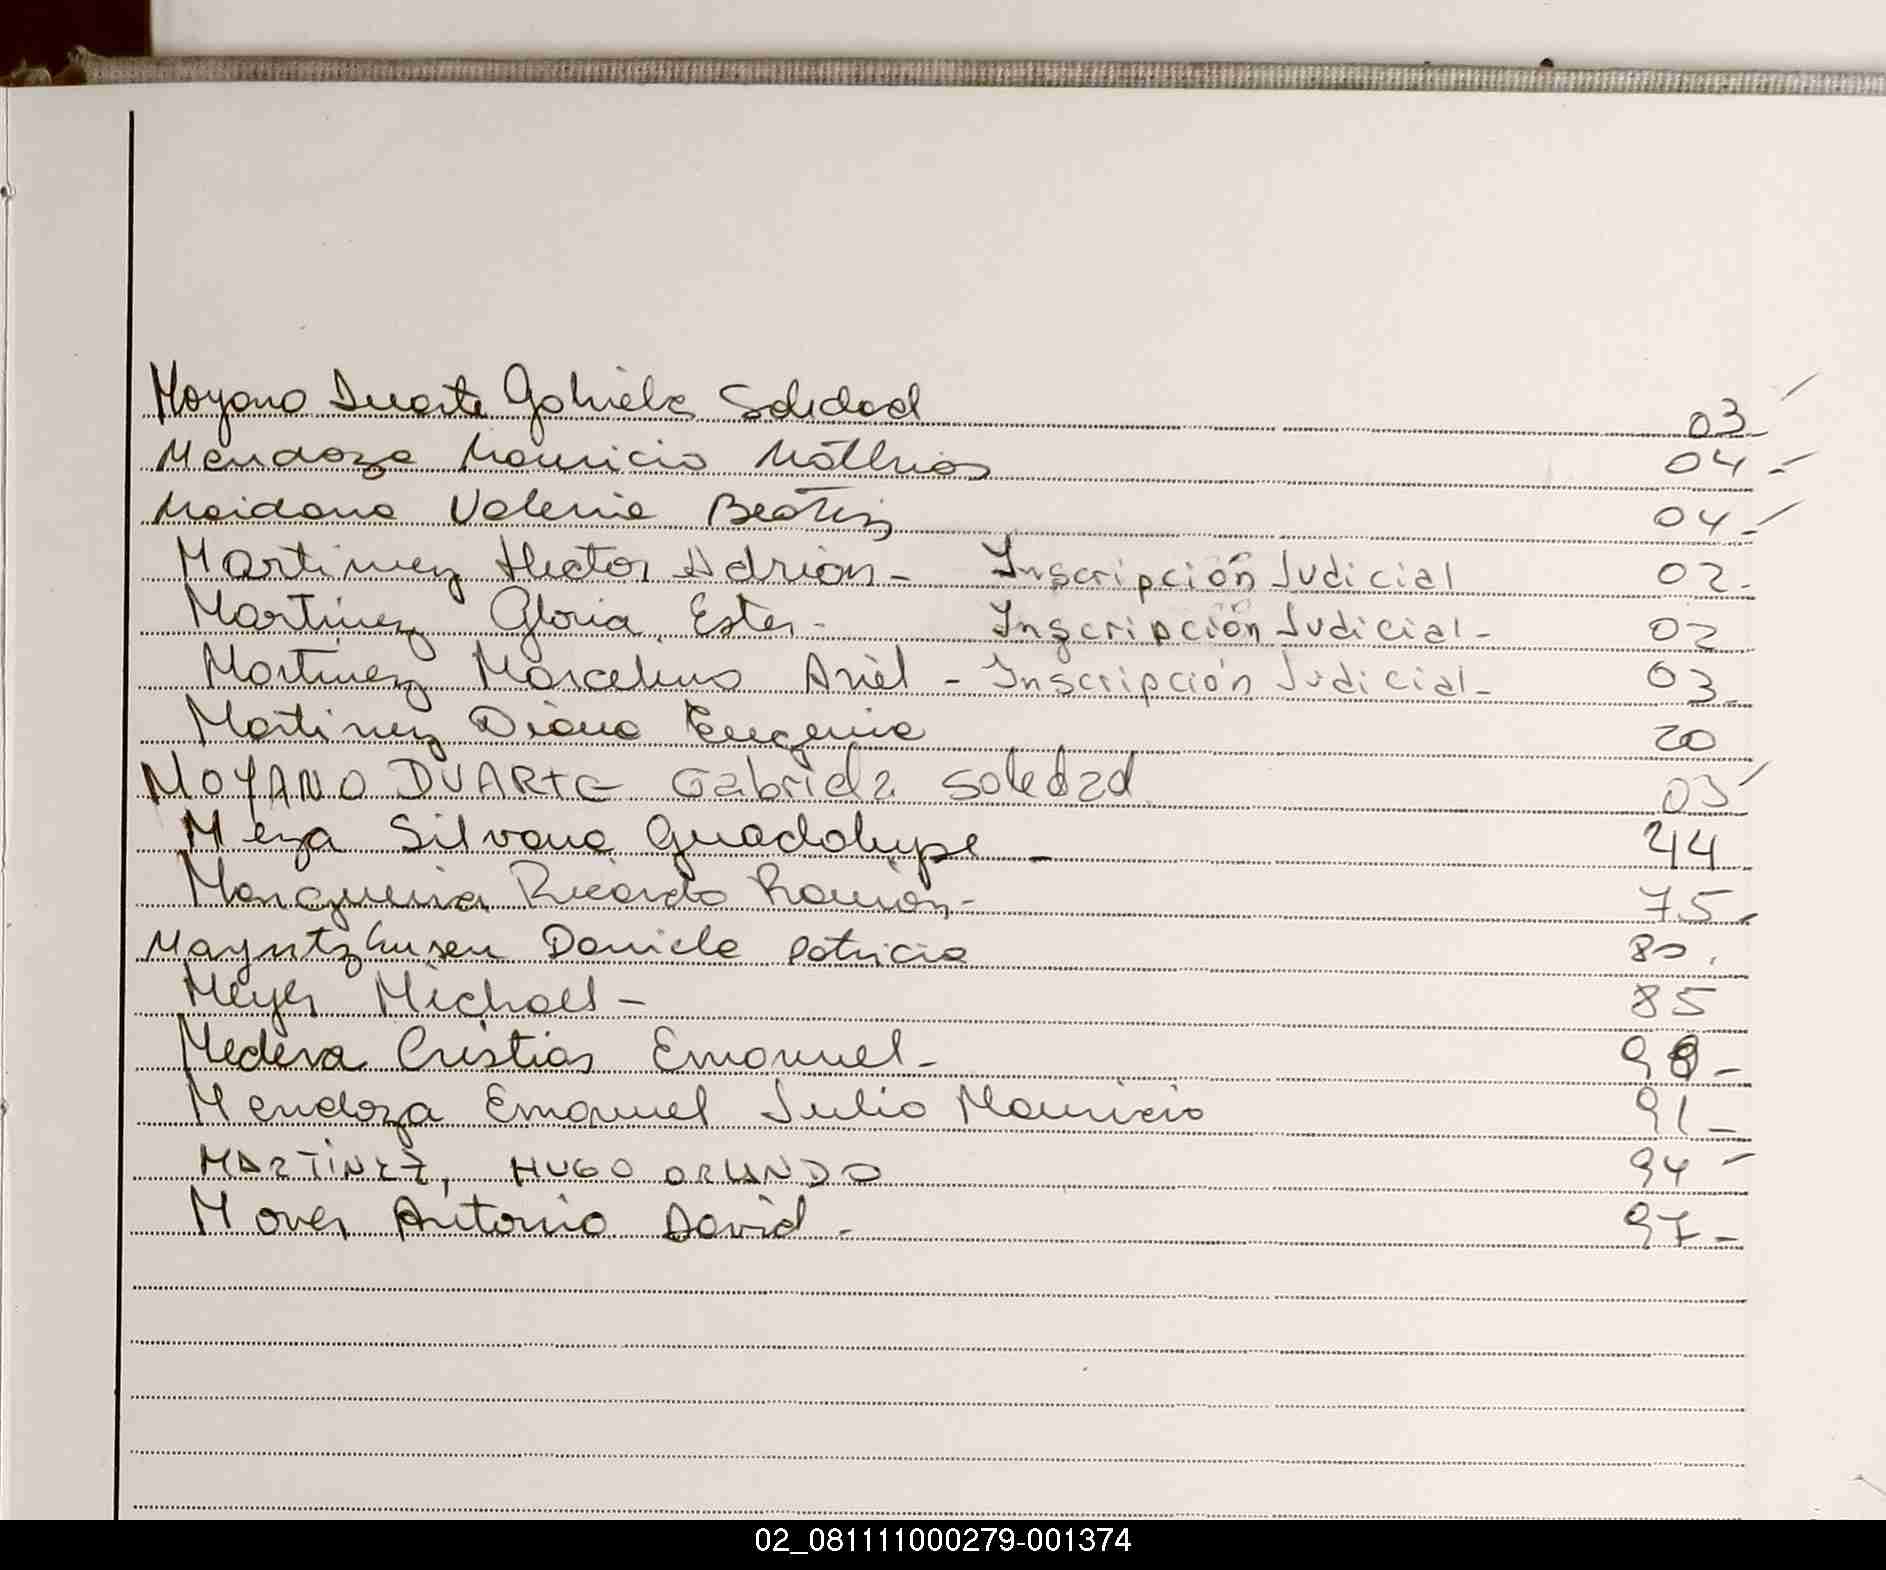 Moyano Duarte Gabriela Soledad 03
Mendoza Mauricio Mathias 04 -
Maidana Valeria Beatriz 04 -
Martinez Hector Adrian - Inscripción Judicial 02 -
Martinez Gloria Ester - Inscripción Judicial - 02
Martinez Marcelino Ariel - Inscripción Judicial - 03 -
Martinez Diana Eugenia 20
MOYANO DUARTE Gabriela Soledad 03
Meza Silvana Guadalupe - 44
Ricardo Ramon - 75 -
Mayntzhusen Daniela Patricia 80.
Meyer Michael - 85
Medera Cristian Emanuel - 98 -
Mendoza Emanuel Julio Mauricio 91 -
MARTÍNEZ, HUGO ORLANDO 94 -
Antonio David - 97 -
02_081111000279-001374